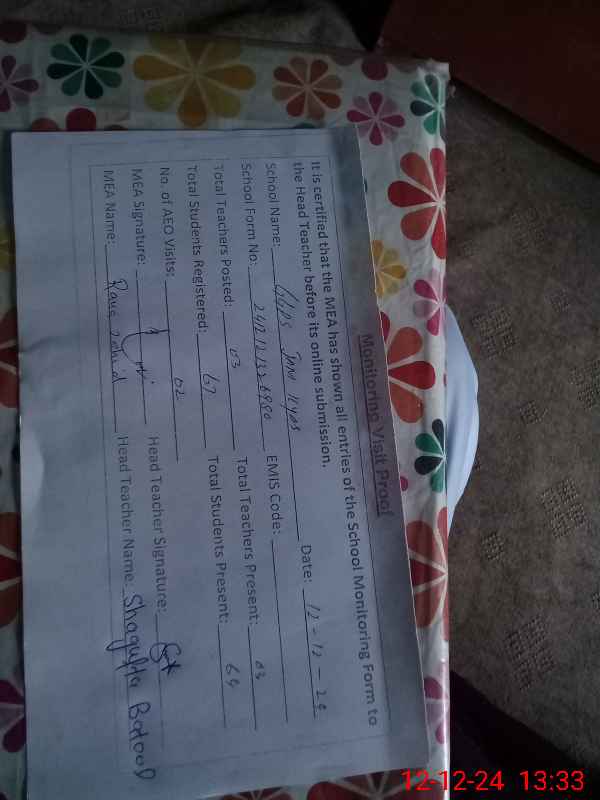 Monitoring Visit Proof
It is certified that the MEA has shown all entries of the School Monitoring Form to
the Head Teacher before its online submission.
School Name: Date: 12-12-24
School Form No: EMIS Code:
Total Teachers Posted: 03 Total Teachers Present: 03
Total Students Registered: 67 Total Students Present: 64
No. of AEO Visits: 02
MEA Signature: Head Teacher Signature:
MEA Name: Rana Head Teacher Name: Shagufta Batool
12-12-24 13:33